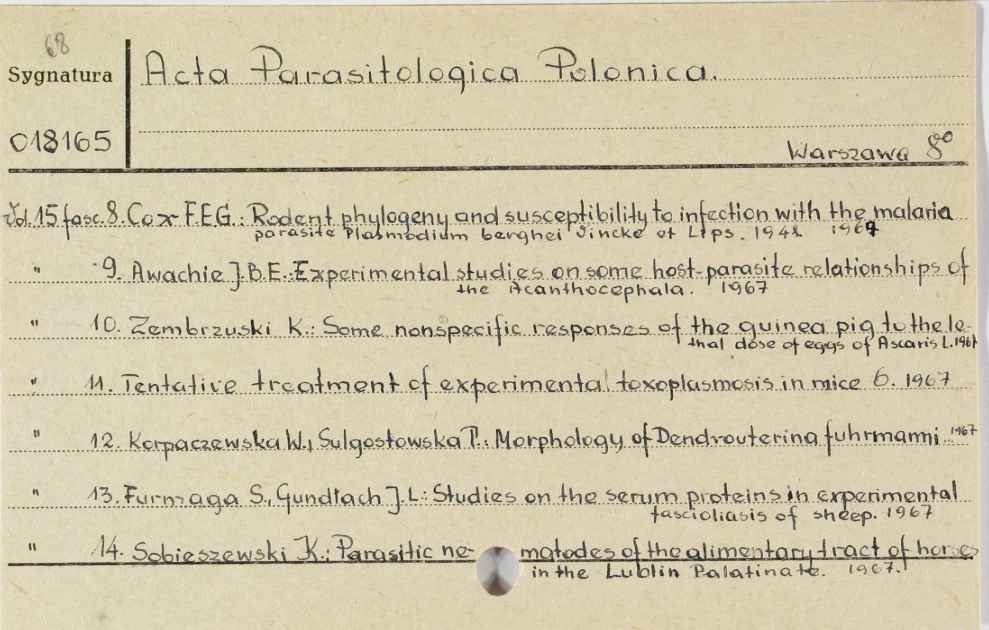 68
Sygnatura
Acta Parasitologica Polonica.
018165
Warszawa 8°
Vol. 15 fasc. 8. Cox F.E.G.: Rodent phylogeny and susceptibility to infection with the malaria
parasite Plasmodium berghei Vincke et Lips. 1948 1967
" 9. Awachie J.B.E.: Experimental studies on some host-parasite relationships of
the Acanthocephala. 1967
" 10. Zembrzuski K.: Some nonspecific responses of the guinea pig to the le-
thal dose of eggs of Ascaris L. 1967
" 11. Tentative treatment of experimental toxoplasmosis in mice 6. 1967
" 12. Korpaczewska W., Sulgostowska T.: Morphology of Dendrouterina fuhrmanni 1967
" 13. Furmaga S., Gundłach J.L.: Studies on the serum proteins in experimental
fascioliasis of sheep. 1967
" 14. Sobieszewski K.: Parasitic ne- matodes of the alimentary tract of horses
in the Lublin Palatinate. 1967.